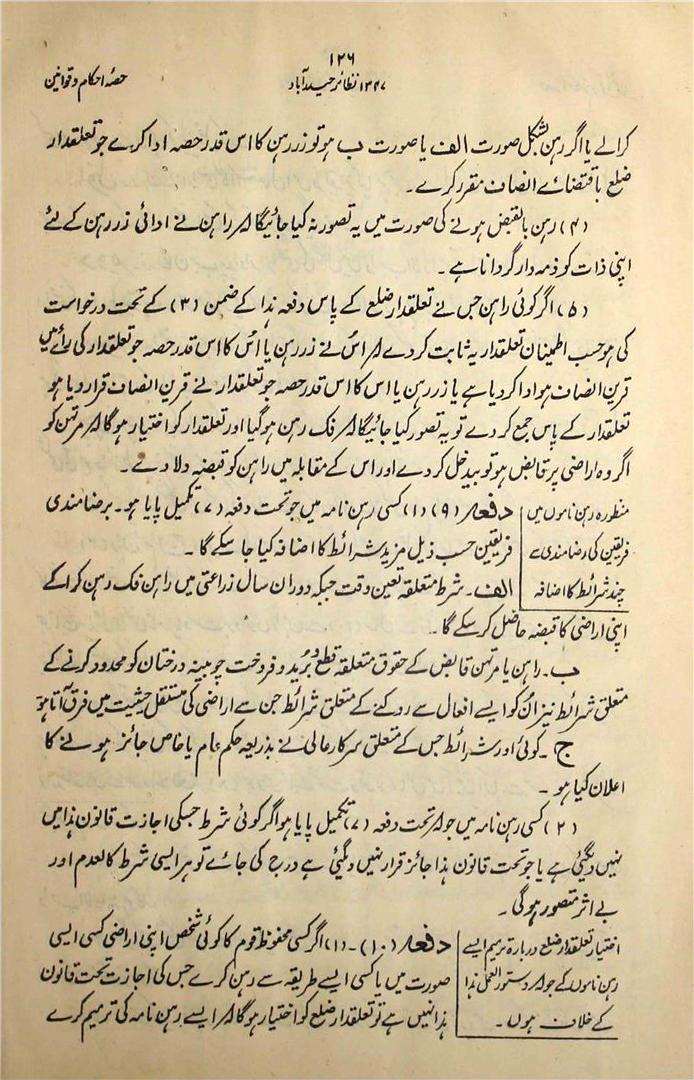 ۱۲۶
۱۳۴۷ نظائر حیدرآباد
حصہ احکام و قوانین
کرالے یا اگر رہن بشکل صورت الف یا صورت ب ہو تو زر رہن کا اس قدر حصہ ادا کرے جو تعلقدار
ضلع باقتضائے انصاف مقرر کرے۔
(۴) رہن بالقبض ہونے کی صورت میں یہ تصور نہ کیا جائیگا کہ راہن نے ادائی زر رہن کے لئے
اپنی ذات کو ذمہ دار گردانا ہے۔
(۵) اگر کوئی راہن جس نے تعلقدار ضلع کے پاس دفعہ ہذا کے ضمن (۳) کے تحت درخواست
کی ہو حسب اطمینان تعلقدار یہ ثابت کر دے کہ اس نے زر رہن یا اُس کا اس قدر حصہ جو تعلقدار کی رائے میں
قرین انصاف ہو ادا کر دیا ہے یا زر رہن یا اس کا اس قدر حصہ جو تعلقدار نے قرین انصاف قرار دیا ہو
تعلقدار کے پاس جمع کر دے تو یہ تصور کیا جائیگا کہ فک رہن ہوگیا اور تعلقدار کو اختیار ہوگا کہ مرتہن کو
اگر وہ اراضی پر قابض ہو تو بیدخل کر دے اور اس کے مقابلہ میں راہن کو قبضہ دلا دے۔
منظورہ رہن ناموں میں
فریقین کی رضامندی سے
چند شرائط کا اضافہ
دفعہ (۹) (۱) کسی رہن نامہ میں جو تحت دفعہ (۷) تکمیل پایا ہو۔ برضامندی
فریقین حسب ذیل مزید شرائط کا اضافہ کیا جا سکے گا۔
الف۔ شرط متعلقہ تعین وقت جبکہ دوران سال زراعتی میں راہن فک رہن کرا کے
اپنی اراضی کا قبضہ حاصل کر سکے گا۔
ب۔ راہن یا مرتہن قابض کے حقوق متعلقہ قطع و برید و فروخت چوبینہ درختان کو محدود کرنے کے
متعلق شرائط نیز ان کو ایسے افعال سے روکنے کے متعلق شرائط جن سے اراضی کی مستقل حیثیت میں فرق آتا ہو
ج۔ کوئی اور شرائط جس کے متعلق سرکار عالی نے بذریعہ حکم عام یا خاص جائز ہونے کا
اعلان کیا ہو۔
(۲) کسی رہن نامہ میں جو کہ تحت دفعہ (۷) تکمیل پایا ہو اگر کوئی شرط جسکی اجازت قانون ہذا میں
نہیں دیگئی ہے یا جو تحت قانون ہذا جائز قرار نہیں دیگئی ہے درج کی جائے تو ہر ایسی شرط کالعدم اور
بے اثر متصور ہوگی۔
اختیار تعلقدار ضلع دربارہ ترمیم ایسے
رہن ناموں کے جو کہ دستور العمل ہذا
کے خلاف ہوں۔
دفعہ (۱۰)۔(۱) اگر کسی محفوظ قوم کا کوئی شخص اپنی اراضی کسی ایسی
صورت میں یا کسی ایسے طریقہ سے رہن کرے جس کی اجازت تحت قانون
ہذا نہیں ہے تو تعلقدار ضلع کو اختیار ہوگا کہ ایسے رہن نامہ کی ترمیم کرے